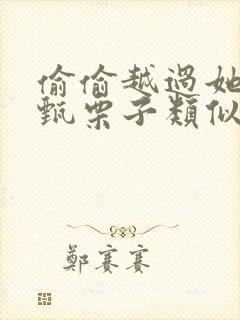 偷偷越過她
甄栗子類似
鄭賽賽